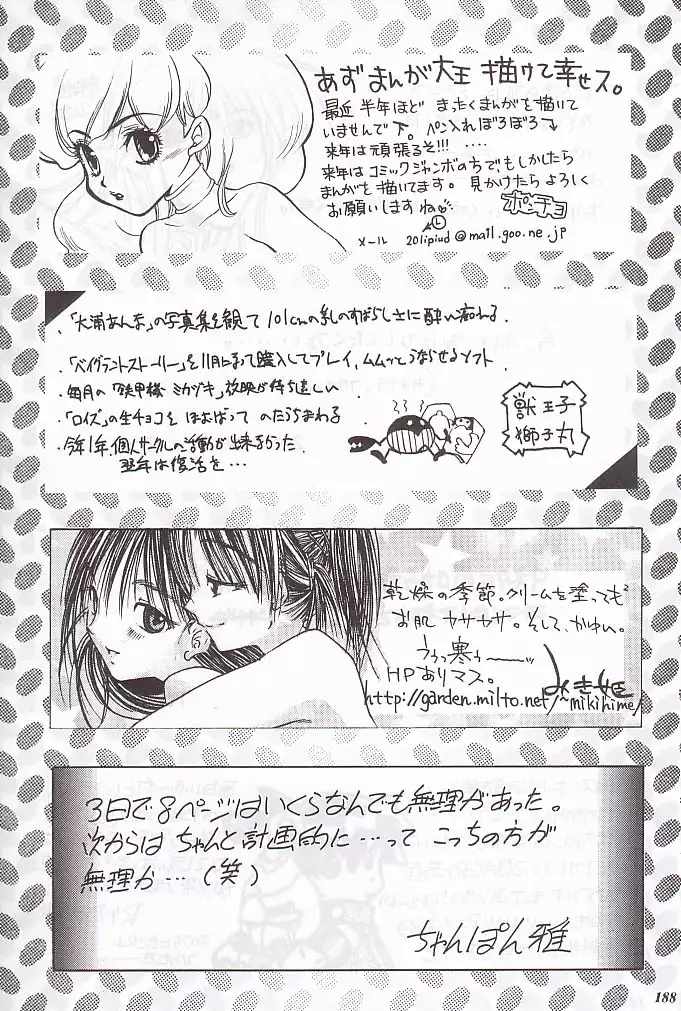 あずまんが大王 描けて幸せス。
最近 半年ほど まったくまんがを描いて
いませんで下。ペン入れぼろぼろ〜
来年は頑張るぞ!!! ‥‥
来年は コミックジャンボのちでもしかしたら
まんがを 描いてます。見かけたら よろしく
お願いしますね
ポンチョ
メール 201ipiud@mail.goo.ne.jp
・「大浦あんな」の写真集を観て101cmの乳のすばらしさに酔い痴れる.
・「ベイグラントストーリー」を11月になって購入してプレイ、ムムッとうならせるソフト.
・毎月の「鉄甲機ミカヅキ」放映が待ち遠しい.
・「ロイズ」の生チョコをほおばって のたうちまわる
・今年1年、個人サークルの活動が出来なかった.
翌年は復活を…
獣王子
獅子丸
乾燥の季節。クリームを塗っても
お肌 カサカサ。そして、かゆい。
うぅっ寒ぅ〜
HPありマス。
みき姫
http://garden.milto.net/~mikihime/
3日で8ページはいくらなんでも無理があった。
次からは ちゃんと計画的に…って こっちの方が
無理か…(笑)
ちゃんぽん雅
188